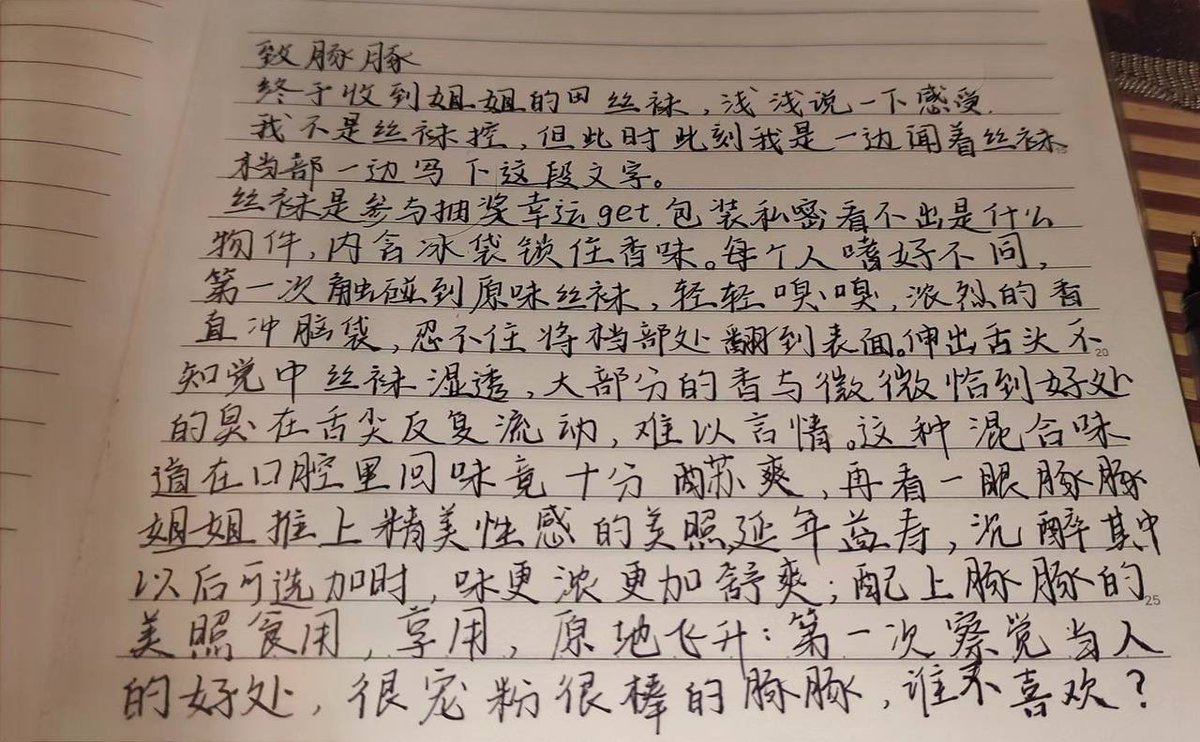 致豚豚
终于收到姐姐的田丝袜，浅浅说一下感受.
我不是丝袜控，但此时此刻我是一边闻着丝袜
档部一边写下这段文字。
丝袜是参与抽奖幸运get.包装私密看不出是什么
物件，内含冰袋锁住香味。每个人嗜好不同，
第一次触碰到原味丝袜，轻轻嗅嗅，浓烈的香
直冲脑袋，忍不住将档部处翻到表面。伸出舌头不
20
知觉中丝袜湿透，大部分的香与微微恰到好处
的臭在舌尖反复流动，难以言情。这种混合味
道在口腔里回味竟十分酥爽，再看一眼豚豚
姐姐推上精美性感的美照延年益寿，沉醉其中
以后可选加时，味更浓更加舒爽；配上豚豚的
25
美照食用，享用，原地飞升：第一次察觉当人
的好处，很宠粉很棒的豚豚，谁不喜欢？